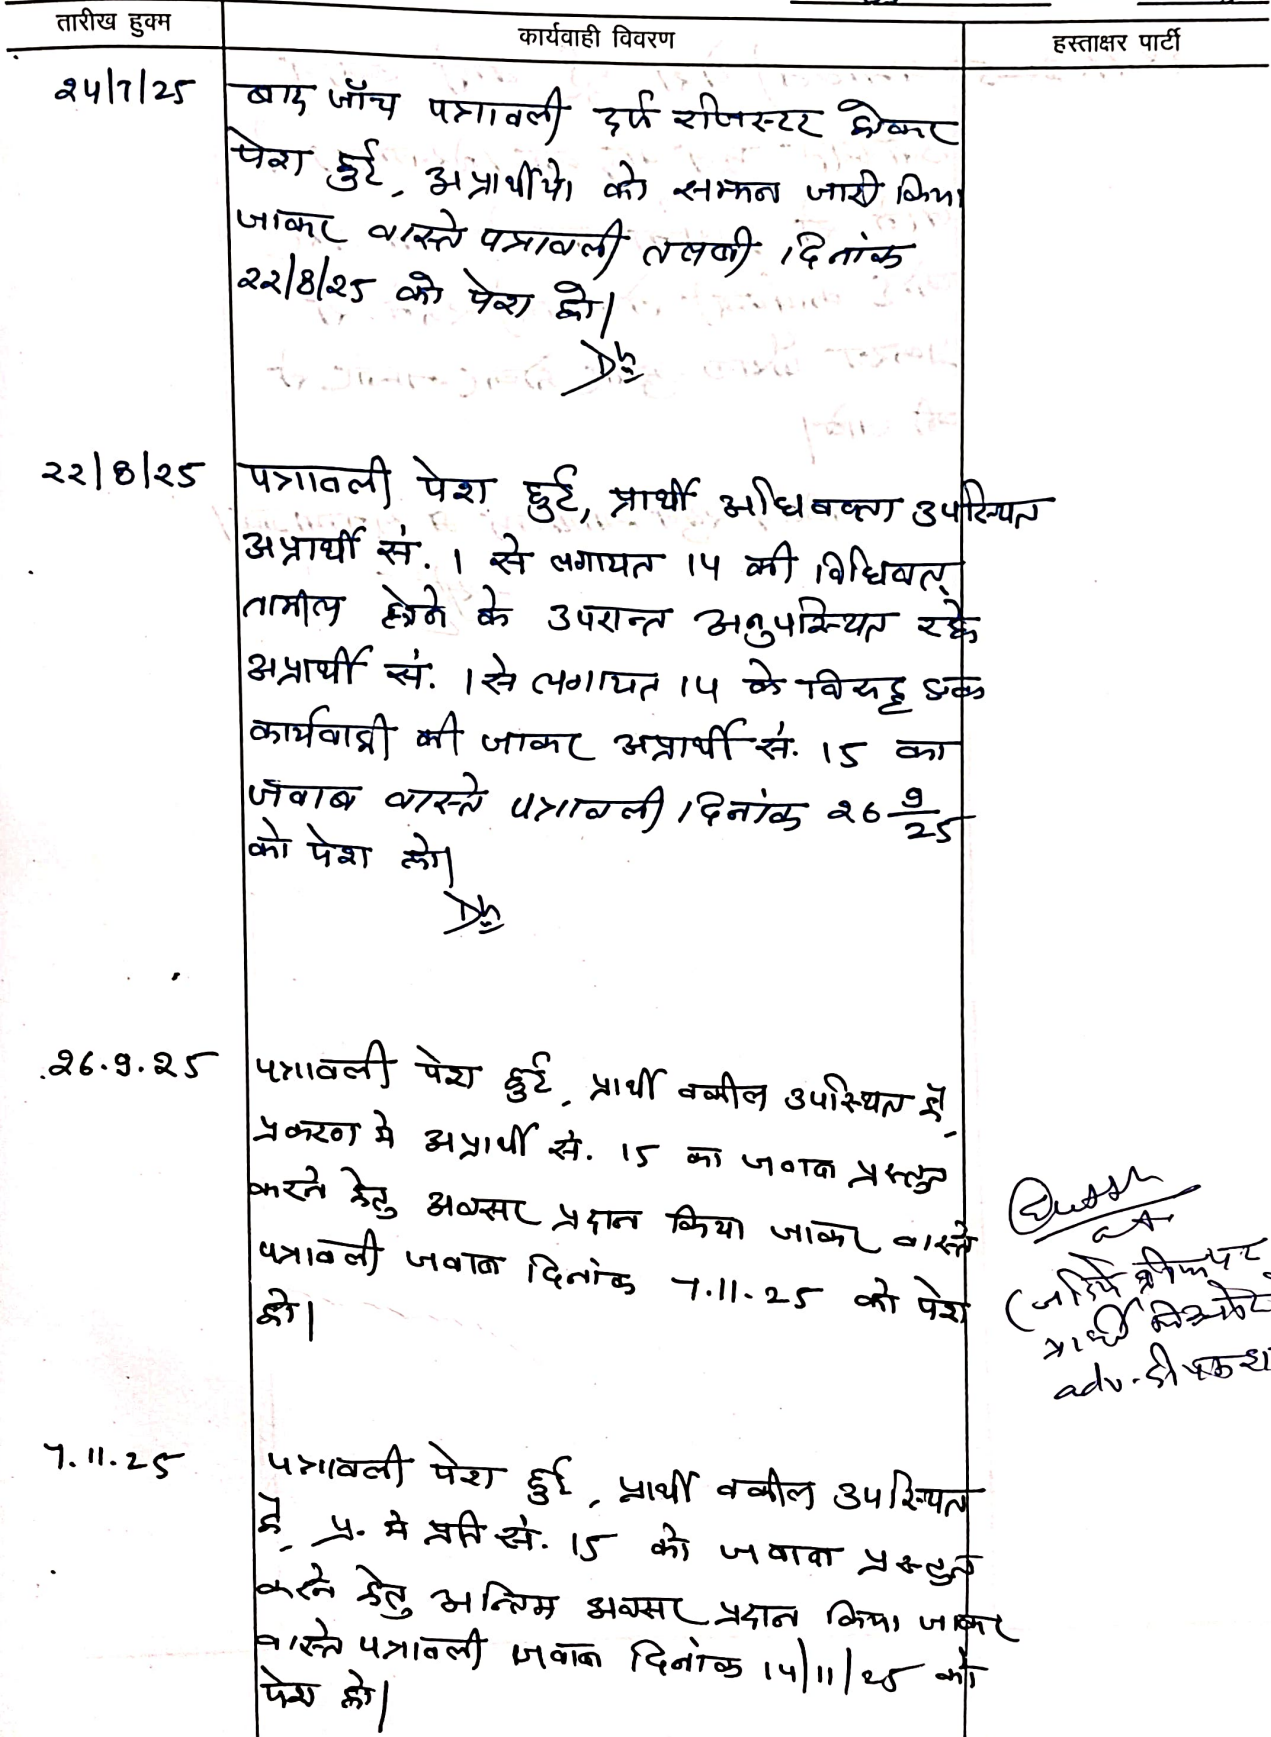 तारीख हुक्म
कार्यवाही विवरण
हस्ताक्षर पार्टी
24/7/25
बाद जॉच पत्रावली दर्ज रजिस्टर होकर
पेश हुई, अप्रार्थीयो को सम्मन जारी किया
जाकर वास्ते पत्रावली तलबी दिनांक
22/8/25 को पेश हो।
22/8/25
पत्रावली पेश हुई, प्रार्थी अधिवक्ता उपस्थित
अप्रार्थी सं. 1 से लगायत 14 की विधिवत्
तामील होने के उपरान्त अनुपस्थित रहे
अप्रार्थी सं. 1 से लगायत 14 के विरुद्ध एक
कार्यवाही की जाकर अप्रार्थी सं. 15 का
जवाब वास्ते पत्रावली दिनांक 26 9/25
को पेश हो।
26.9.25
पत्रावली पेश हुई, प्रार्थी वकील उपस्थित है,
प्रकरण मे अप्रार्थी सं. 15 का जवाब प्रस्तुत
करने हेतु अवसर प्रदान किया जाकर वास्ते
पत्रावली जवाब दिनांक 7.11.25 को पेश
हो।
प्रार्थी
adv.
7.11.25
पत्रावली पेश हुई, प्रार्थी वकील उपस्थित
है, प्र. मे प्रति सं. 15 को जवाब प्रस्तुत
करने हेतु अन्तिम अवसर प्रदान किया जाकर
वास्ते पत्रावली जवाब दिनांक 14/11/25 को
पेश हो।